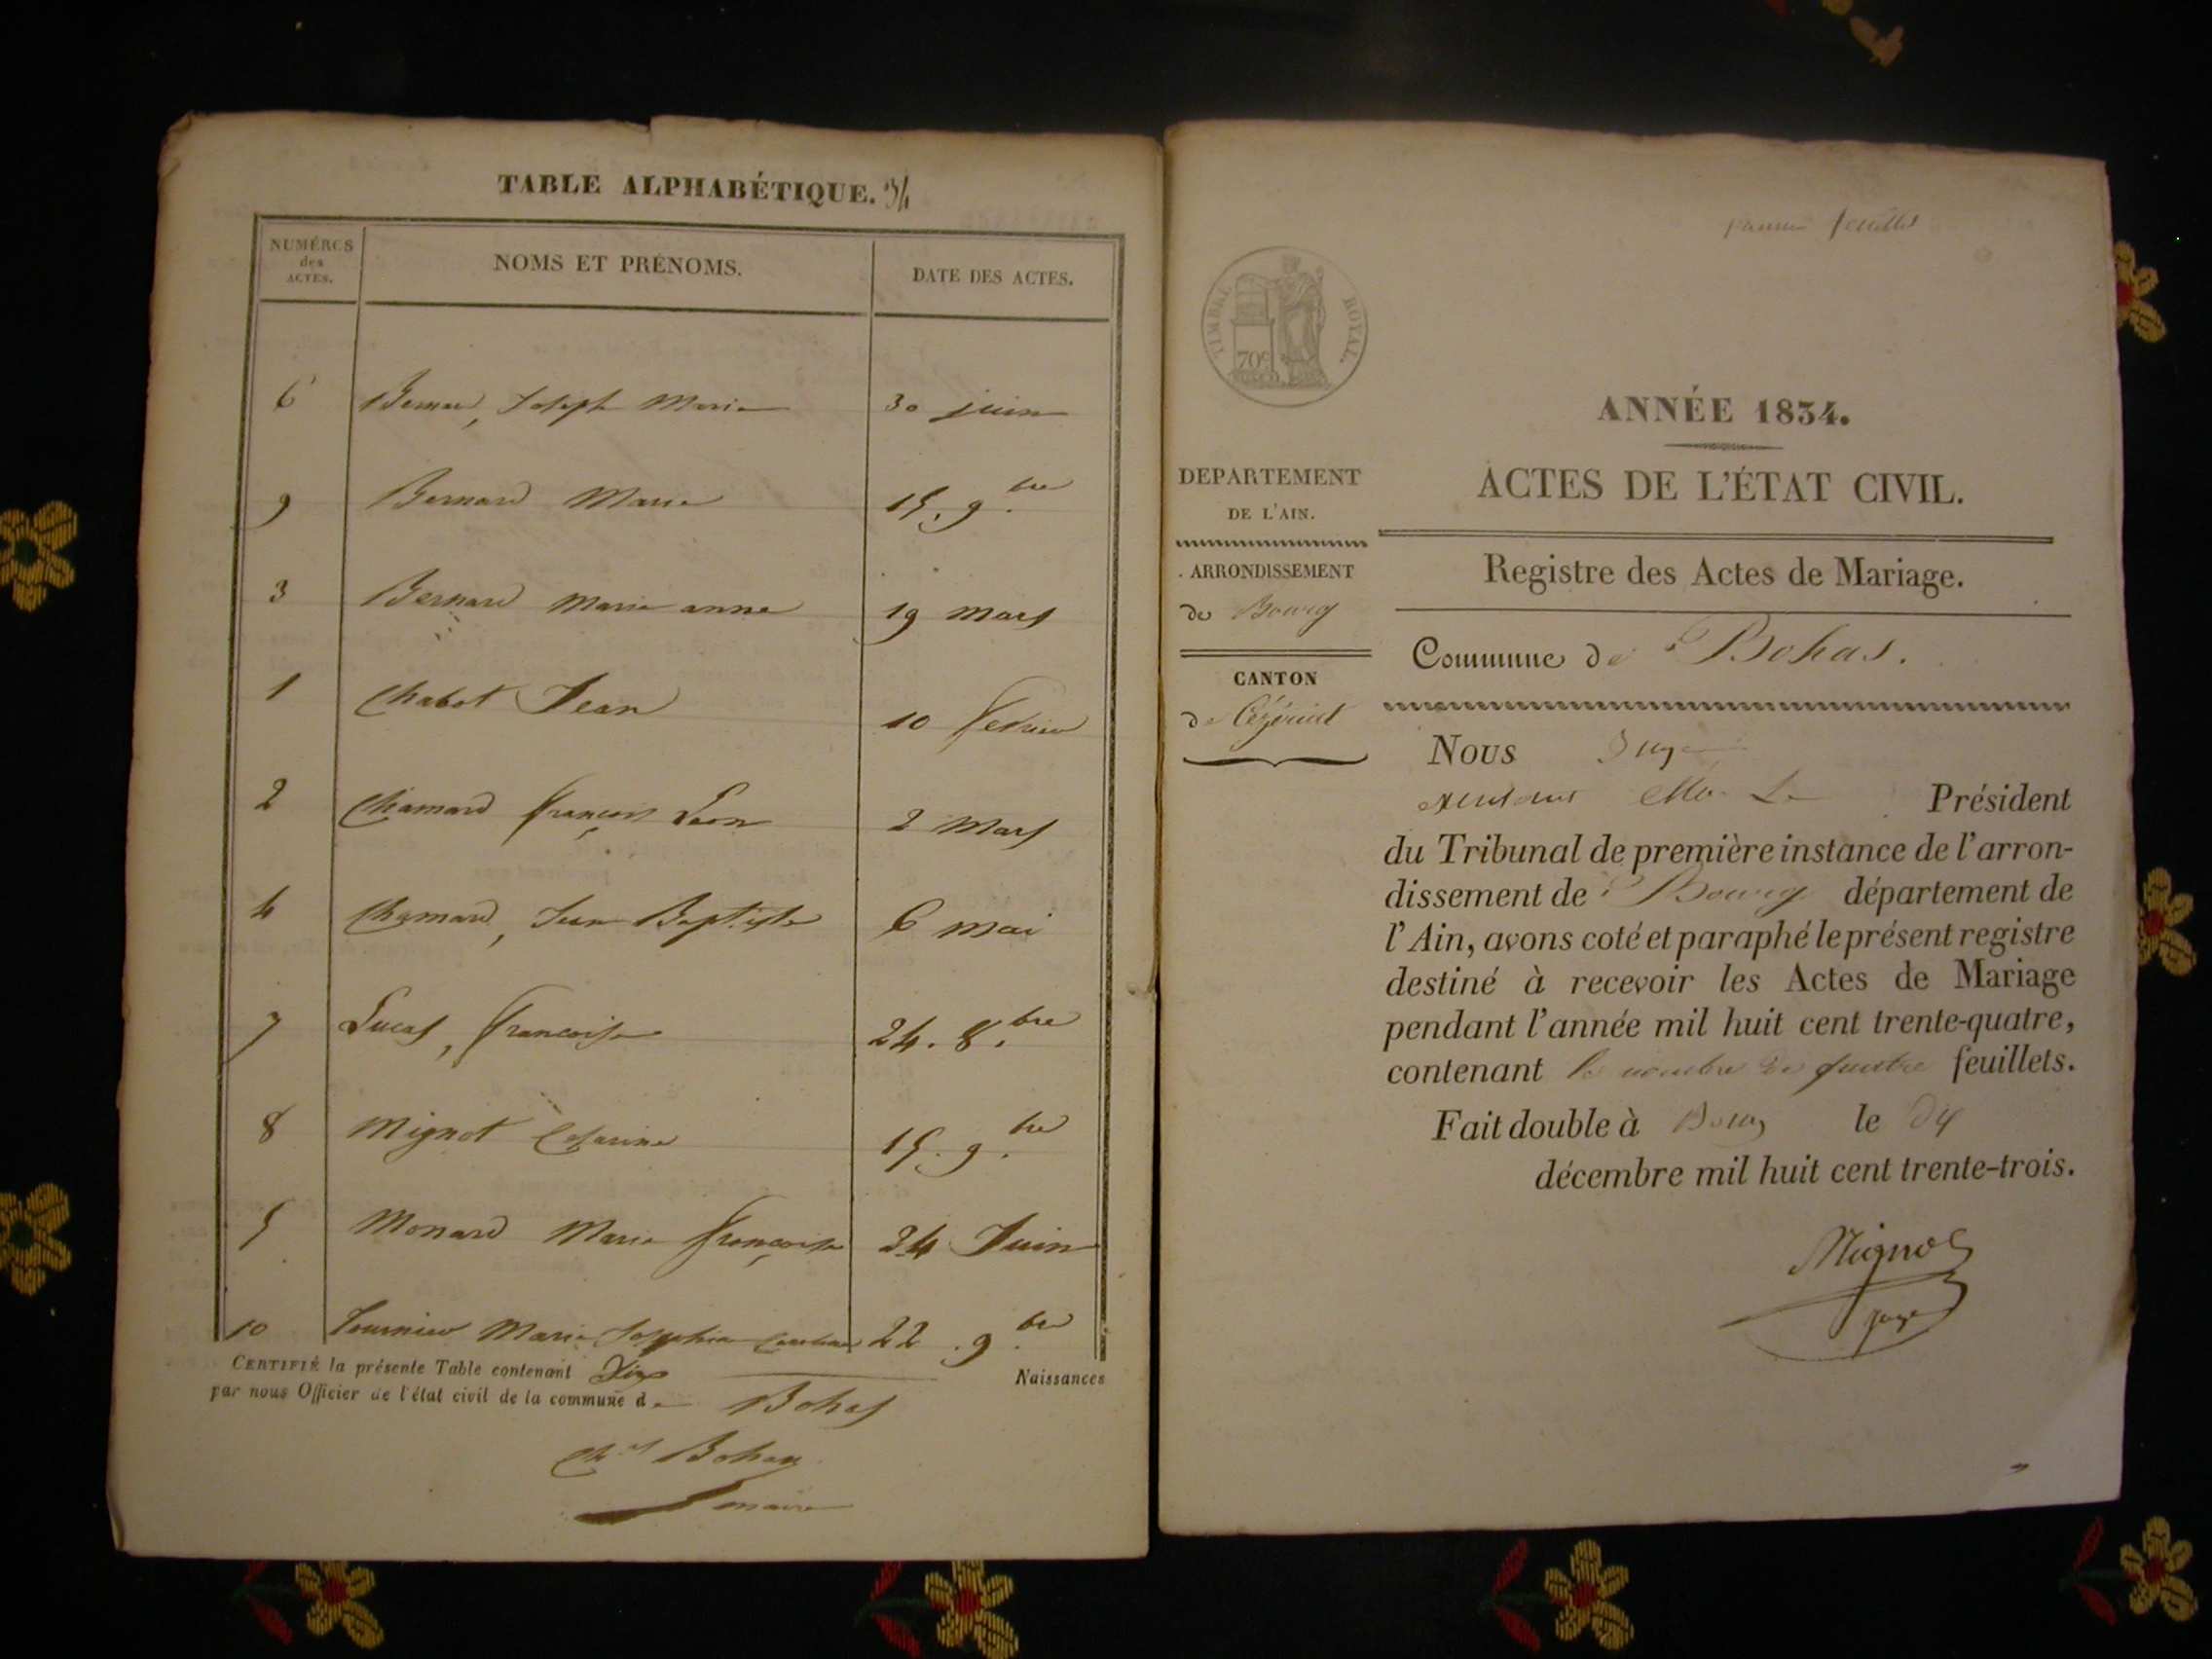 TABLE ALPHABÉTIQUE. 34
NUMÉROS
des
ACTES.
NOMS ET PRÉNOMS.
DATE DES ACTES.
6 Joseph Marie 30 juin
9 Bernard Marie 15. 9.bre
3 Bernard Marie anne 19 mars
1 Chabot Jean 10 fevrier
2 Chamard françois Leon 2 Mars
4 Chamard, Jean Baptiste 6 mai
7 Lucas, francoise 24. 8.bre
8 Mignot 15. 9.bre
5 Monard Marie françoise 24 Juin
10 Tournier Marie Josephine 22. 9.bre
CERTIFIÉ la présente Table contenant Dix Naissances
par nous Officier de l'état civil de la commune de Bohas
Bohan
maire
premier feuillet
TIMBRE ROYAL.
70c
DEPARTEMENT
DE L'AIN.
ARRONDISSEMENT
de Bourg
CANTON
de Cézériat
ANNÉE 1834.
ACTES DE L'ÉTAT CIVIL.
Registre des Actes de Mariage.
Commune de Bohas.
Nous Juge
Président
du Tribunal de première instance de l'arron-
dissement de Bourg département de
l'Ain, avons coté et paraphé le présent registre
destiné à recevoir les Actes de Mariage
pendant l'année mil huit cent trente-quatre,
contenant le nombre de quatre feuillets.
Fait double à Bourg le
décembre mil huit cent trente-trois.
Mignot
juge